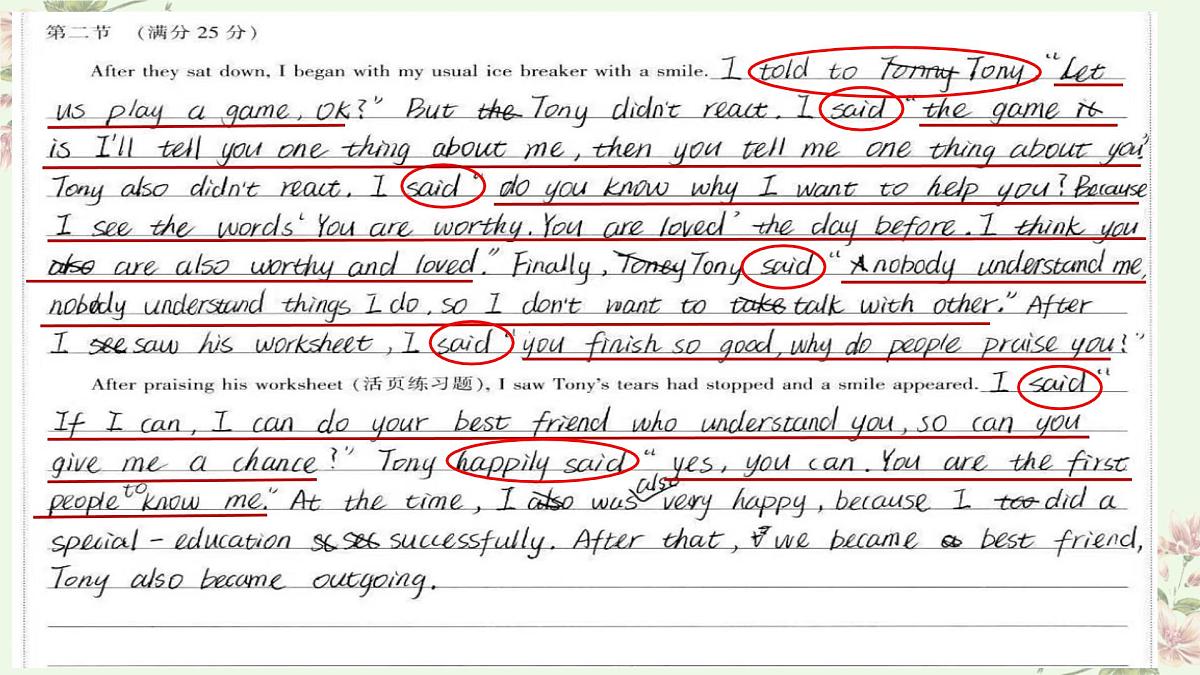 第二节 （满分 25 分）
After they sat down, I began with my usual ice breaker with a smile. I told to Tonny Tony "Let
us play a game, OK?" But the Tony didn't react. I said "the game it
is I'll tell you one thing about me, then you tell me one thing about you."
Tony also didn't react. I said "do you know why I want to help you? Because
I see the words 'You are worthy. You are loved' the day before. I think you
also are also worthy and loved." Finally, Toney Tony said "A nobody understand me,
nobody understand things I do, so I don't want to take talk with other." After
I see saw his worksheet, I said "you finish so good, why do people praise you?"
After praising his worksheet (活页练习题), I saw Tony's tears had stopped and a smile appeared. I said "
If I can, I can do your best friend who understand you, so can you
give me a chance?" Tony happily said "yes, you can. You are the first
people to know me." At the time, I also was also very happy, because I too did a
special-education successfully. After that, we became a best friend,
Tony also became outgoing.